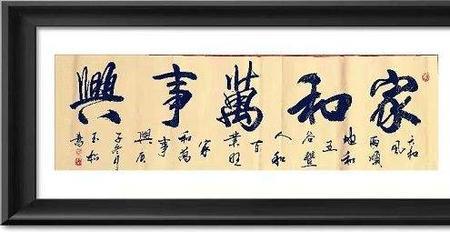 家和萬事興
天和
風
雨順
地和
五
谷豐
人和
百
業旺
家
和萬
事
興
子冬月
玉松
書